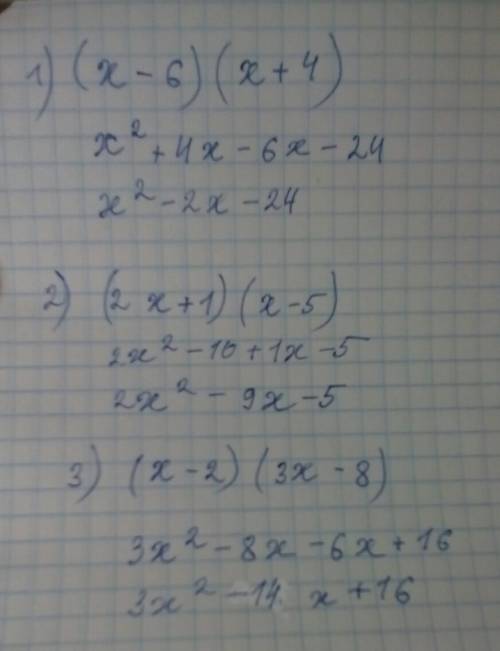 1) (x - 6)(x + 4)
x² + 4x - 6x - 24
x² - 2x - 24
2) (2x + 1)(x - 5)
2x² - 10 + 1x - 5
2x² - 9x - 5
3) (x - 2)(3x - 8)
3x² - 8x - 6x + 16
3x² - 14x + 16